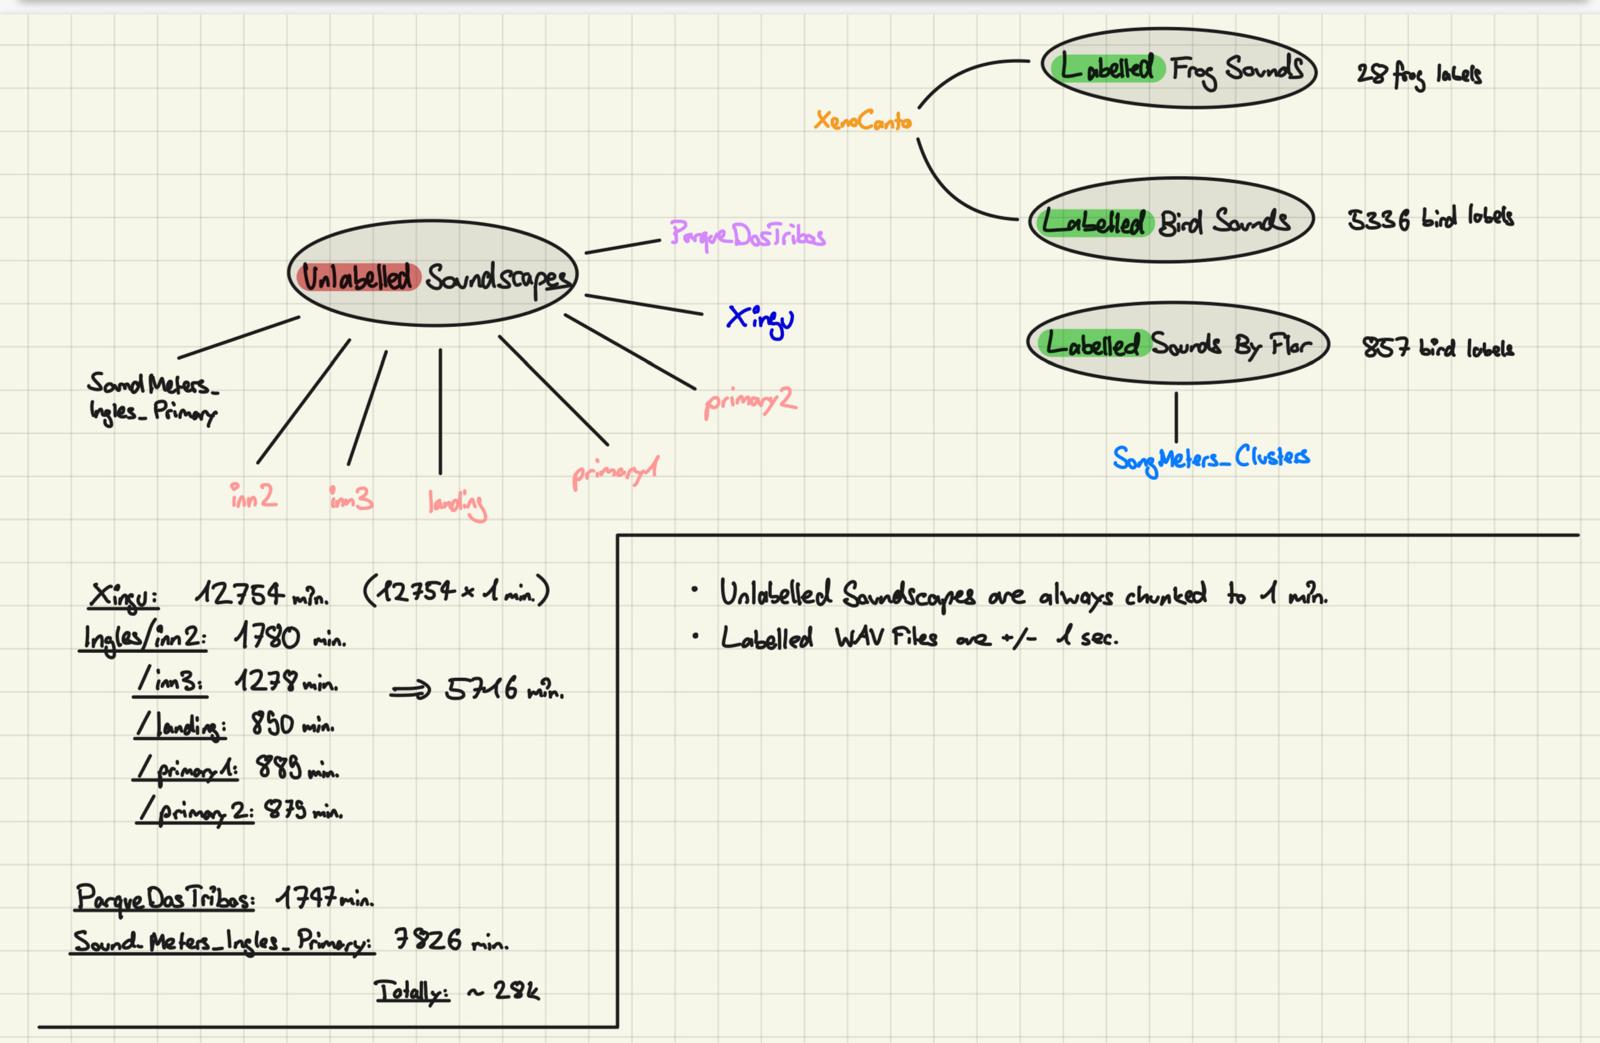 Labelled Frog Sounds
28 frog labels
XenoCanto
Labelled Bird Sounds
5336 bird labels
ParqueDosTribos
Unlabelled Soundscapes
Xingu
Labelled Sounds By Flor
857 bird labels
SoundMeters_
Ingles_Primary
primary2
SongMeters_Clusters
primary1
inn2
inn3
landing
Xingu: 12754 min. (12754 × 1 min.)
Ingles/inn2: 1780 min.
/inn3: 1278 min. ⇒ 5716 min.
/landing: 890 min.
/primary1: 889 min.
/primary2: 879 min.
ParqueDosTribos: 1747 min.
Sound_Meters_Ingles_Primary: 7826 min.
Totally: ~ 28k
• Unlabelled Soundscapes are always chunked to 1 min.
• Labelled WAV Files are +/- 1 sec.